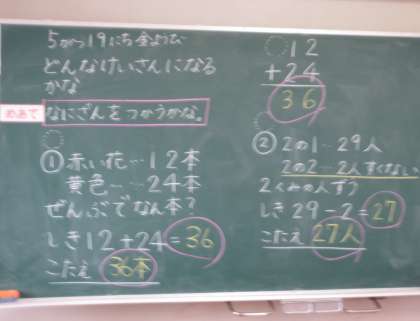 5がつ19にち金ようび
どんなけいさんになる
かな
めあて
なにざんをつかうかな。
①赤い花…12本
黄色…24本
ぜんぶでなん本?
しき12+24=36
こたえ 36本
12
+24
36
②2の1…29人
2の2…2人すくない
2くみの人ずう
しき29-2=27
こたえ 27人